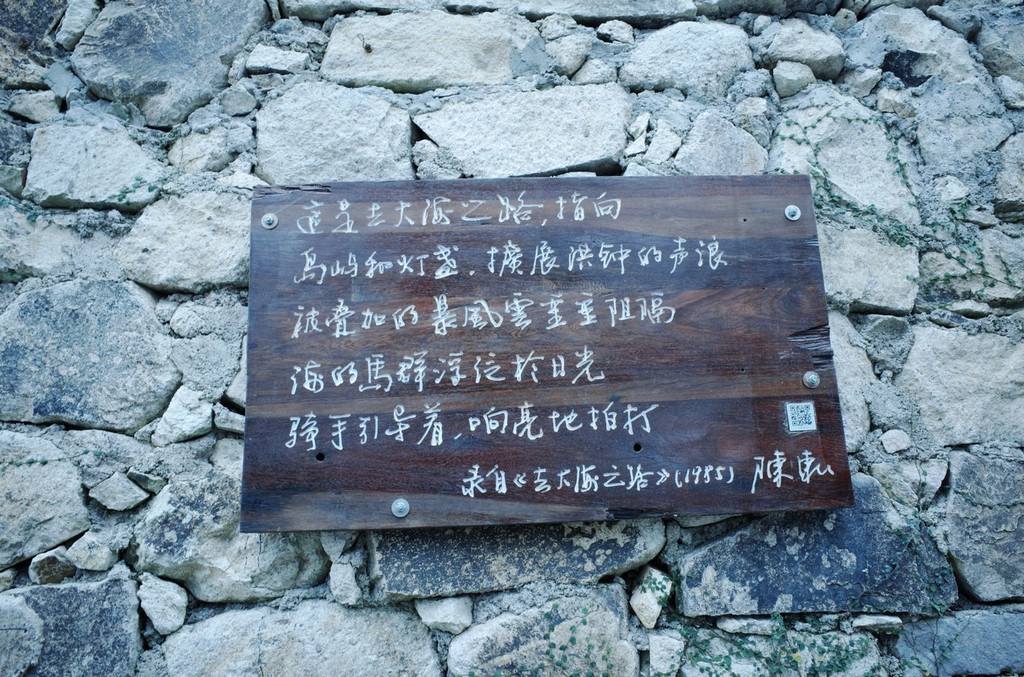 這是去大海之路，指向
岛屿和灯盏，擴展洪钟的声浪
被叠加的暴風雲重重阻隔
海的馬群浮泛於日光
骑手引导着，响亮地拍打
录自《去大海之路》(1985) 陳東